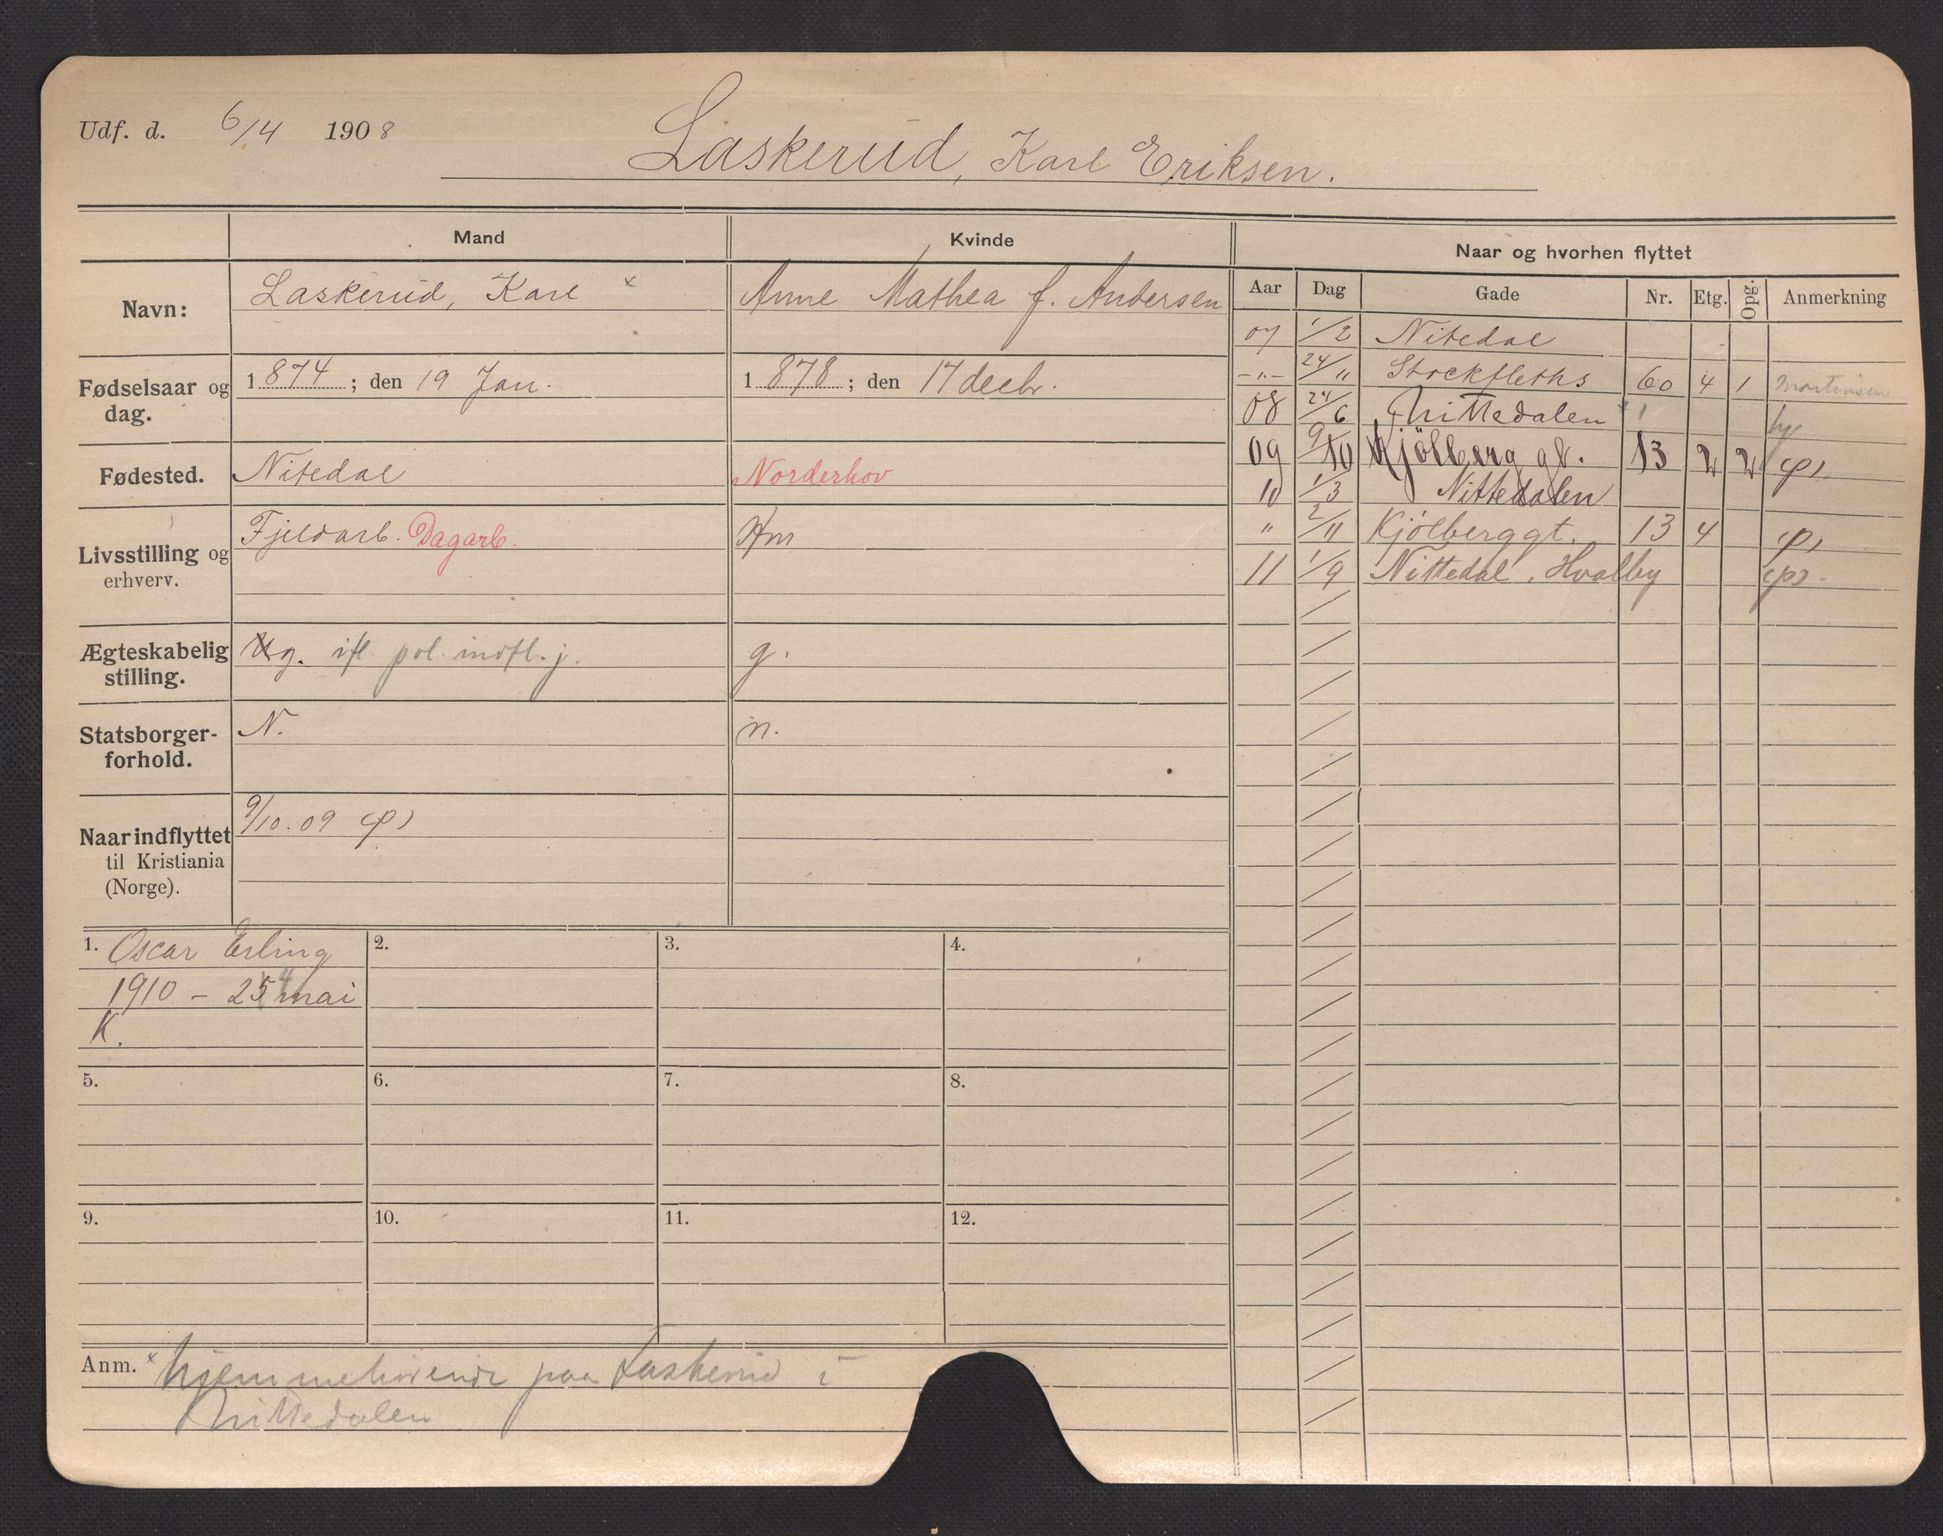 Udf. d. 6/4 1908
Laskerud, Karl Eriksen.
Mand
Kvinde
Naar og hvorhen flyttet
Navn:
Laskerud, Karl x
Anne Mathea f. Andersen
Fødselsaar og dag.
1874; den 19 Jan.
1878; den 17 decbr.
Fødested.
Nitedal
Norderhov
Livsstilling og erhverv.
Fjeldarb. Dagarb.
Hm
Ægteskabelig stilling.
Ug. ifl. pol. indfl. j.
g.
Statsborgerforhold.
N.
n.
Naar indflyttet til Kristiania (Norge).
9/10.09 (p)
Aar Dag Gade Nr. Etg. Opg. Anmerkning
07 1/2 Nitedal
-"- 24/11 Stockfleths 60 4 1 Martinsen
08 24/6 Nittedalen
09 9/10 Kjölberg gt. 13 2 2 (p).
10 1/3 Nittedalen
" 2/11 Kjølberggt. 13 4 (p)
11 1/9 Nittedal, Hvalby (p).
1. Oscar Erling
1910 – 254 mai
K.
2.
3.
4.
5.
6.
7.
8.
9.
10.
11.
12.
Anm. x hjemmehørende paa Laskerud i
Nittedalen